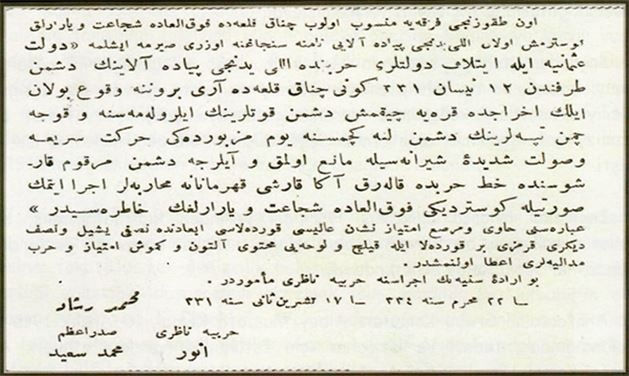 اون طقوزنجی فرقه‌یه منسوب اولوب چناق قلعه‌ده فوق‌العاده شجاعت و یارارلق
کوسترمش اولان اللی یدنجی پیاده آلایی نامنه سنجاغنه اوزری صیرمه ایشلمه «دولت
عثمانیه ایله ایتلاف دولتلری حربنده اللی یدنجی پیاده آلاینك دشمن
طرفندن ١٢ نیسان ٣٣١ کونی چناق قلعه‌ده آری بروننه وقوع بولان
ایلك اخراجده قره‌یه چیقمش دشمن قوتلرینك ایلرولمه‌سنه و قوجه
چمن تپه‌لرینك دشمن النه کچمه‌سنه بویوك حرکت
وصولت شدیدهٔ شیرانه‌سیله مانع اولمق و آیلرجه دشمن مرقوم قار-
شوسنده خط حربده قاله‌رق آکا قارشی قهرمانانه محاربه‌لر اجرا ایتمك
صورتیله کوستردیکی فوق‌العاده شجاعت و یارارلغك خاطره‌سیدر»
عباره‌سنی حاوی و مرصع امتیاز نشان عالیسی قورده‌لاسی ابعادنده نصفی یشیل ونصف
دیکری قرمزی بر قورده‌لا ایله قیلیچ و لوحه‌یی محتوی آلتون و کموش امتیاز حرب
مدالیه‌لری اعطا اولنمشدر.
بو ارادهٔ سنیه‌نك اجراسنه حربیه ناظری مأموردر
٢٢ محرم سنه ٣٣٤ ١٧ تشرین ثانی سنه ٣٣١
محمد رشاد
حربیه ناظری
صدر اعظم
انور
محمد سعید